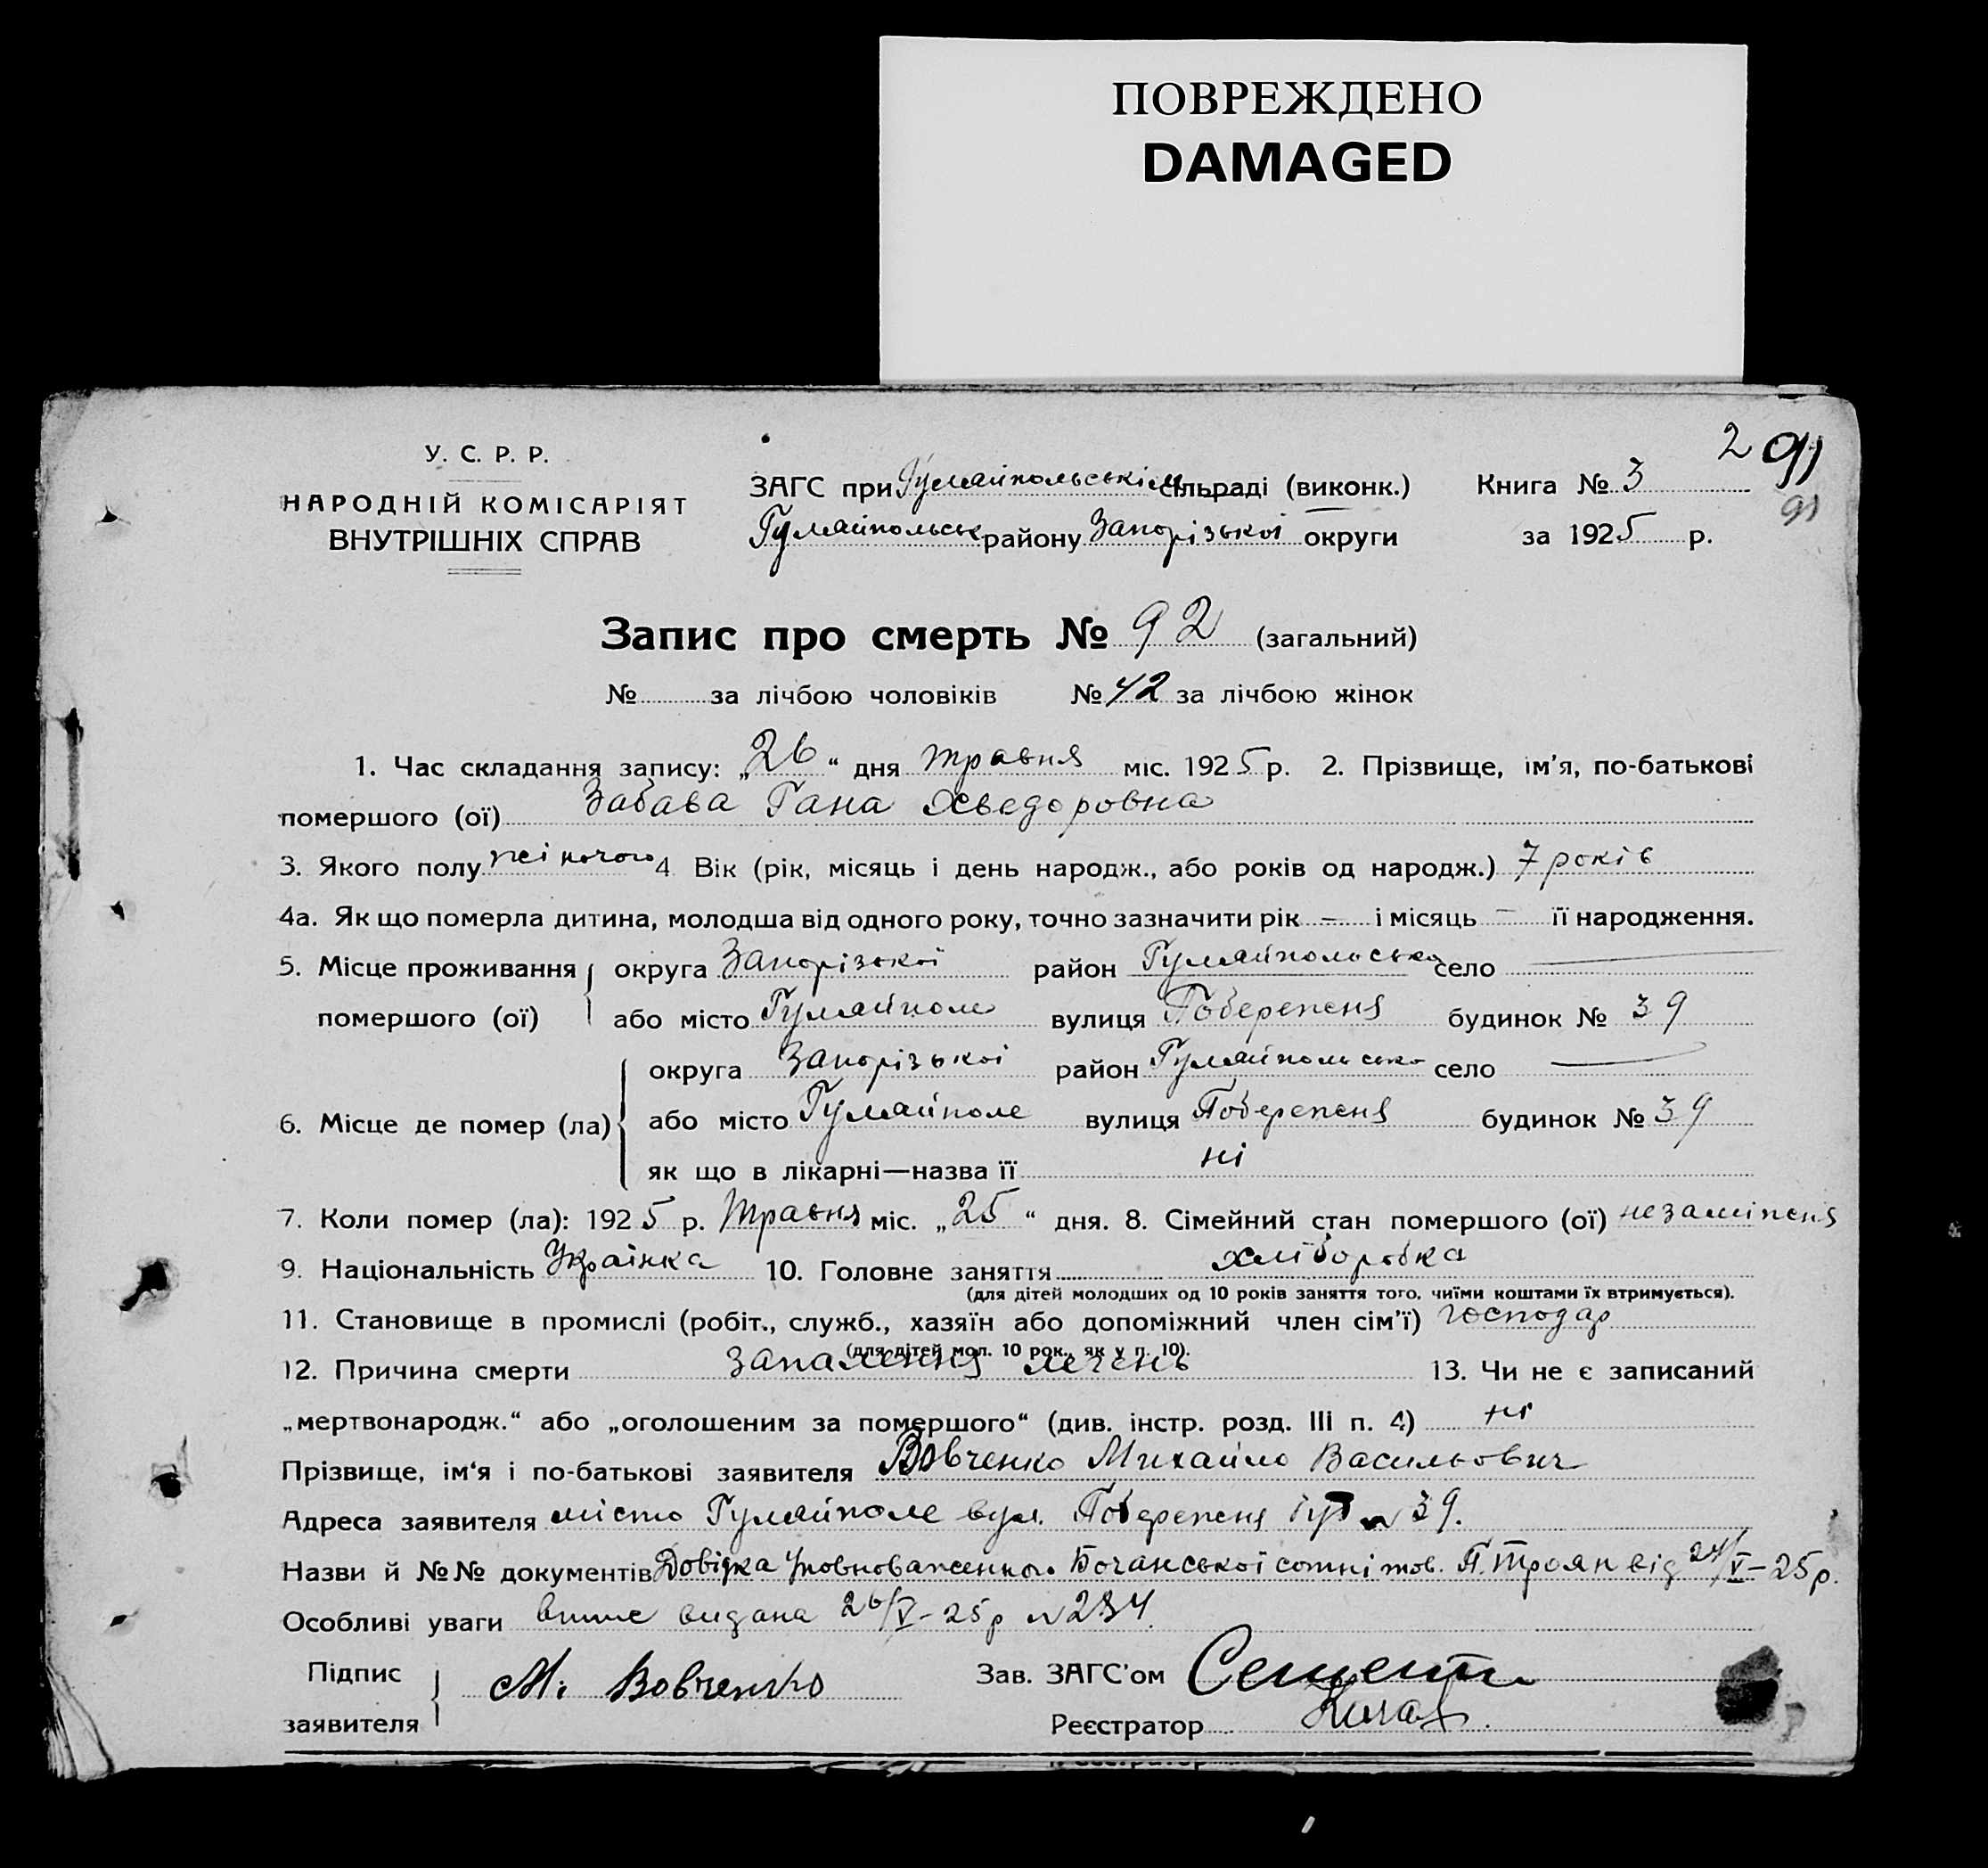 ПОВРЕЖДЕНО
DAMAGED
2 91
91
У. С. Р. Р.
НАРОДНІЙ КОМІСАРІЯТ
ВНУТРІШНІХ СПРАВ
ЗАГС при Гуляйпольськім сільраді (виконк.) Книга № 3
Гуляйпольськ району Запорізької округи за 1925 р.
Запис про смерть № 92 (загальний)
№ за лічбою чоловіків № 42 за лічбою жінок
1. Час складання запису: „26“ дня травня міс. 1925 р. 2. Прізвище, ім’я, по-батькові
помершого (ої) Забава Гана Хведоровна
3. Якого полу жіночого 4. Вік (рік, місяць і день народж., або років од народж.) 7 років
4а. Як що померла дитина, молодша від одного року, точно зазначити рік – і місяць – її народження.
5. Місце проживання помершого (ої) округа Запорізької район Гуляйпольсько село —
або місто Гуляйполе вулиця Побережня будинок № 39
6. Місце де помер (ла) округа Запорізької район Гуляйпольсько село —
або місто Гуляйполе вулиця Побережня будинок № 39
як що в лікарні—назва її ні
7. Коли помер (ла): 1925 р. Травня міс. „25“ дня. 8. Сімейний стан помершого (ої) незаміжня
9. Національність Українка 10. Головне заняття хліборобка
(для дітей молодших од 10 років заняття того, чиїми коштами їх втримується).
11. Становище в промислі (робіт., служб., хазяїн або допоміжний член сім’ї) господар
(для дітей мол. 10 рок., як у п. 10).
12. Причина смерти запалення легень 13. Чи не є записаний
„мертвонародж.“ або „оголошеним за помершого“ (див. інстр. розд. III п. 4) ні
Прізвище, ім‘я і по-батькові заявителя Вовченко Михайло Васильович
Адреса заявителя місто Гуляйполе вул. Побережня буд № 39.
Назви й №№ документів Довідка Уповноваженного Бочанської сотні тов. П. Троян від 24/V–25 р.
Особливі уваги видана 26/V–25 р № 234
Підпис заявителя М. Вовченко
Зав. ЗАГС’ом
Реєстратор